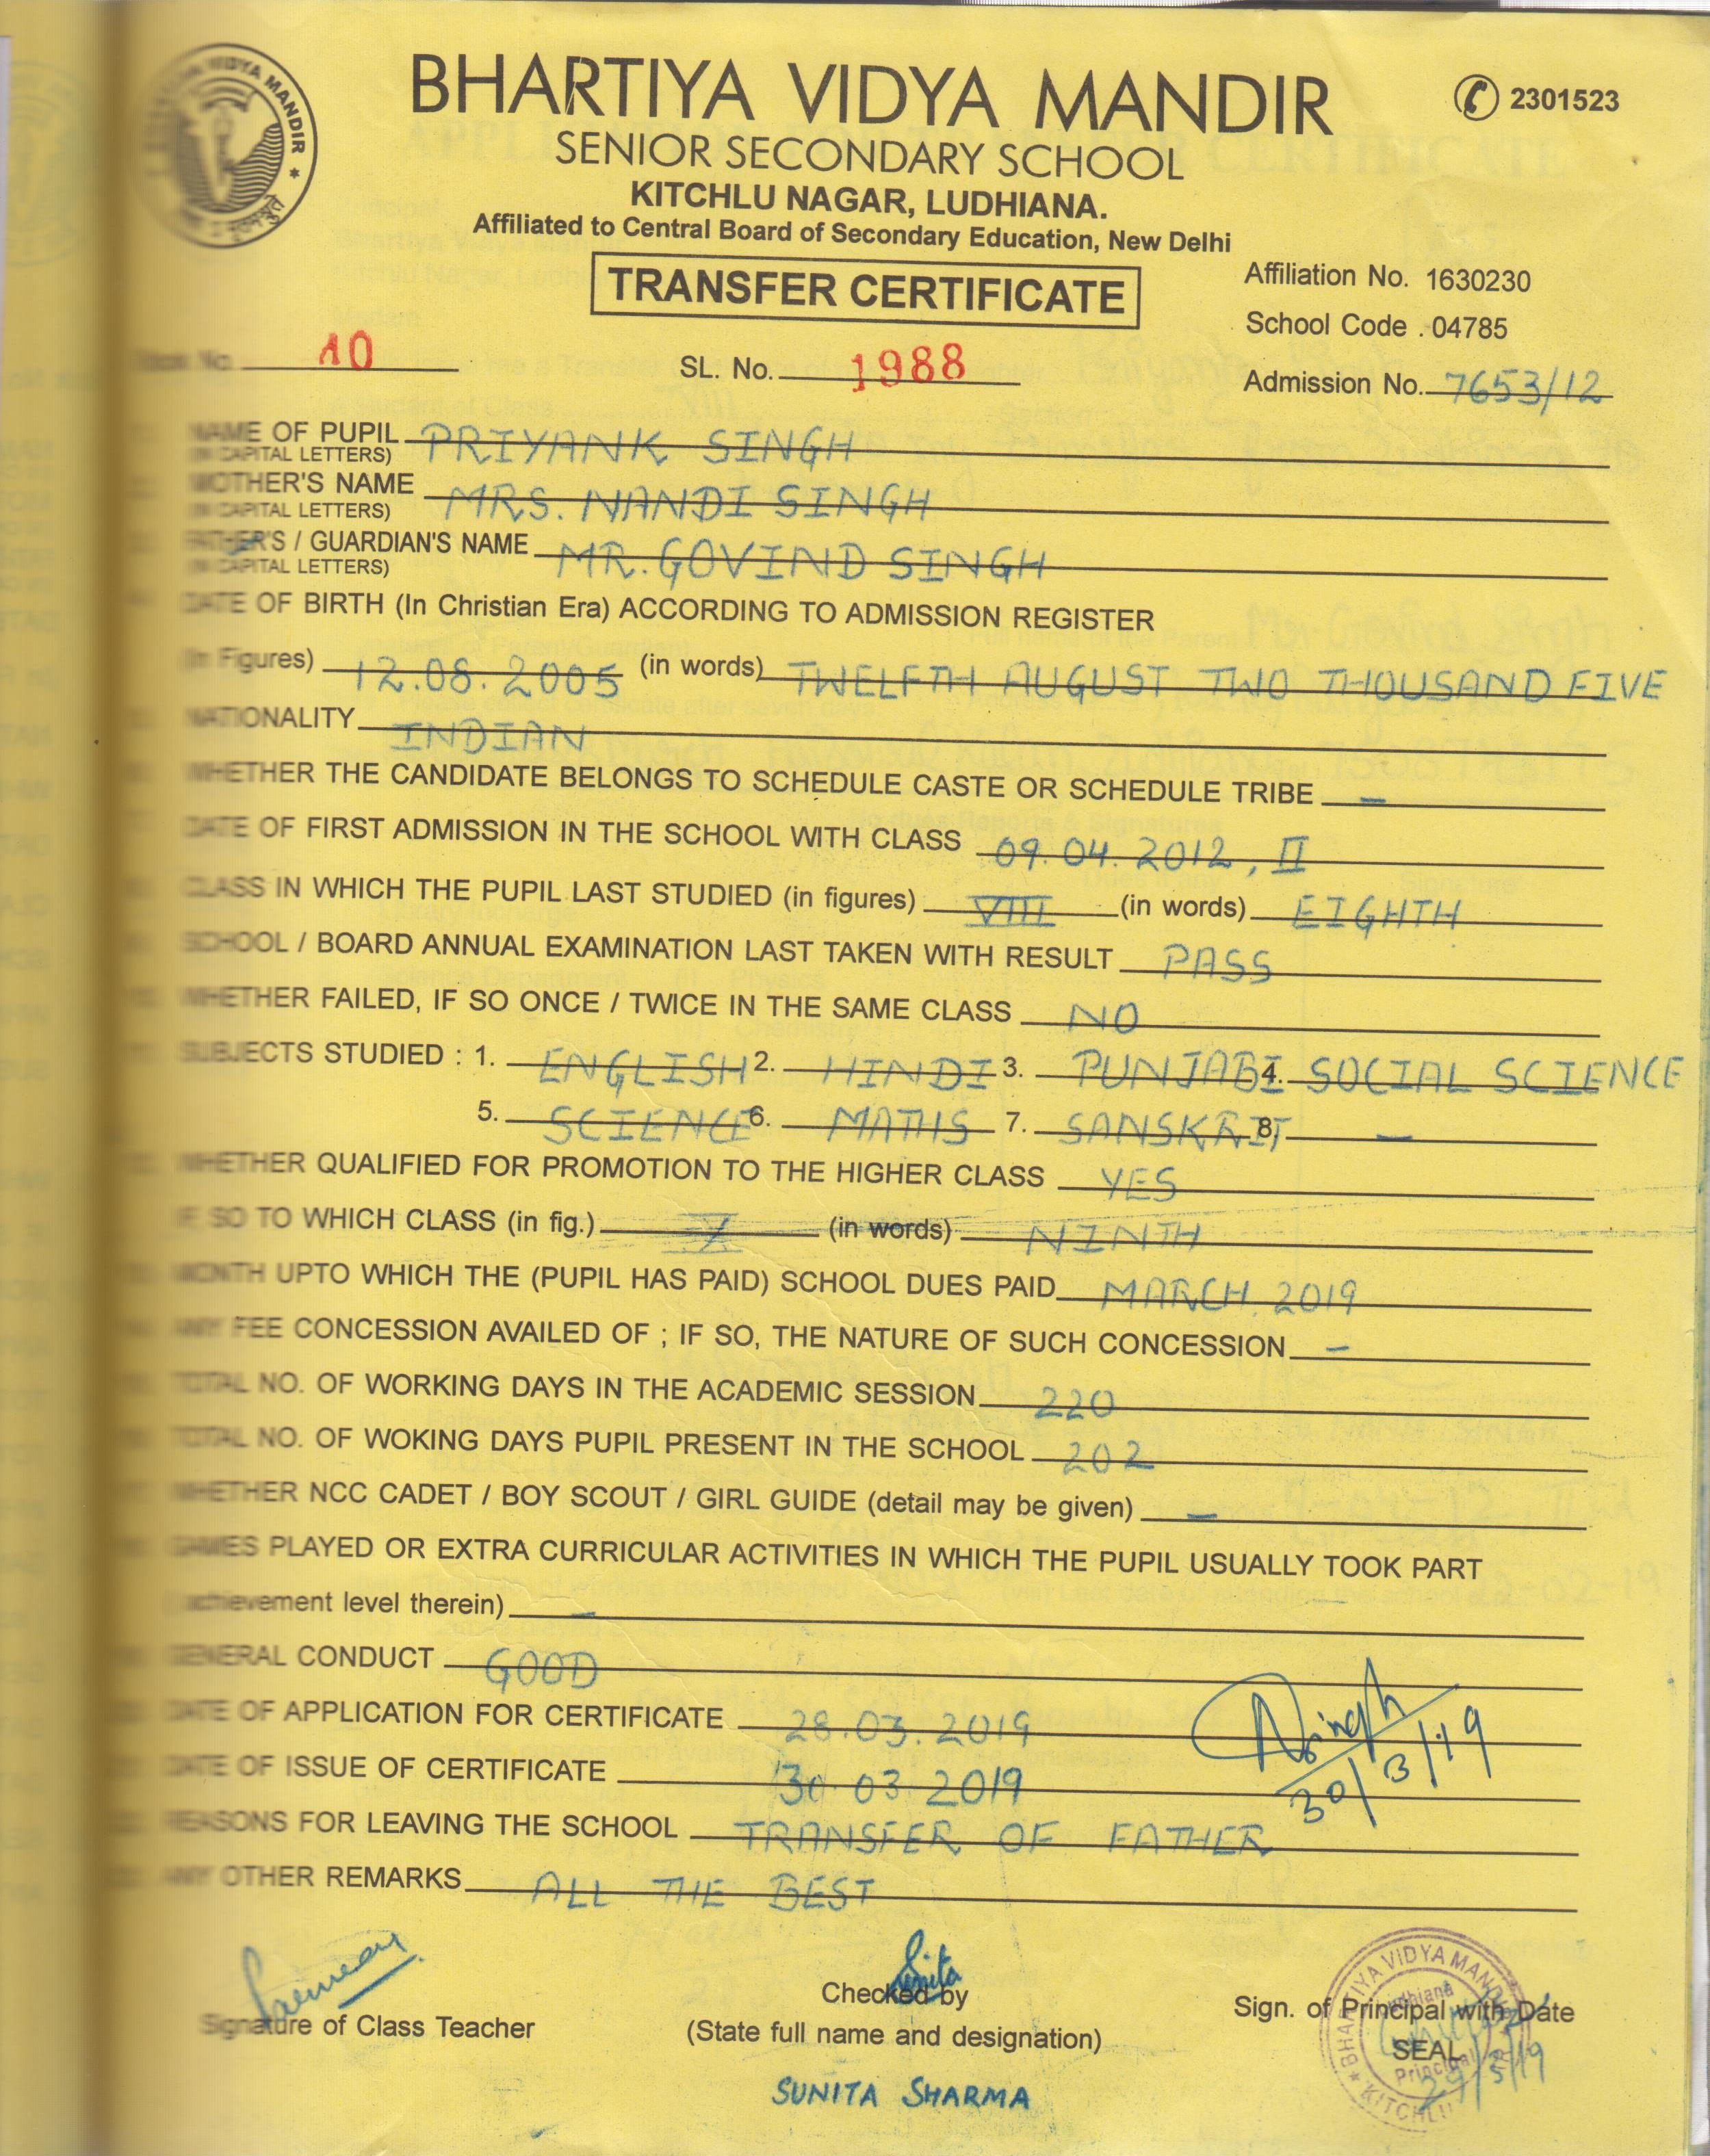 BHARTIYA VIDYA MANDIR
2301523
SENIOR SECONDARY SCHOOL
KITCHLU NAGAR, LUDHIANA.
Affiliated to Central Board of Secondary Education, New Delhi
TRANSFER CERTIFICATE
Affiliation No. 1630230
School Code . 04785
No. 10 SL. No. 1988 Admission No. 7653/12
NAME OF PUPIL PRIYANK SINGH
(IN CAPITAL LETTERS)
MOTHER'S NAME MRS. NANDI SINGH
(IN CAPITAL LETTERS)
FATHER'S / GUARDIAN'S NAME MR. GOVIND SINGH
(IN CAPITAL LETTERS)
DATE OF BIRTH (In Christian Era) ACCORDING TO ADMISSION REGISTER
(In Figures) 12.08.2005 (in words) TWELFTH AUGUST TWO THOUSAND FIVE
NATIONALITY INDIAN
WHETHER THE CANDIDATE BELONGS TO SCHEDULE CASTE OR SCHEDULE TRIBE –
DATE OF FIRST ADMISSION IN THE SCHOOL WITH CLASS 09.04.2012, II
CLASS IN WHICH THE PUPIL LAST STUDIED (in figures) VIII (in words) EIGHTH
SCHOOL / BOARD ANNUAL EXAMINATION LAST TAKEN WITH RESULT PASS
WHETHER FAILED, IF SO ONCE / TWICE IN THE SAME CLASS NO
SUBJECTS STUDIED : 1. ENGLISH 2. HINDI 3. PUNJABI 4. SOCIAL SCIENCE
5. SCIENCE 6. MATHS 7. SANSKRIT 8. –
WHETHER QUALIFIED FOR PROMOTION TO THE HIGHER CLASS YES
IF SO TO WHICH CLASS (in fig.) (in words) NINTH
MONTH UPTO WHICH THE (PUPIL HAS PAID) SCHOOL DUES PAID MARCH, 2019
ANY FEE CONCESSION AVAILED OF ; IF SO, THE NATURE OF SUCH CONCESSION –
TOTAL NO. OF WORKING DAYS IN THE ACADEMIC SESSION 220
TOTAL NO. OF WOKING DAYS PUPIL PRESENT IN THE SCHOOL 202
WHETHER NCC CADET / BOY SCOUT / GIRL GUIDE (detail may be given) –
GAMES PLAYED OR EXTRA CURRICULAR ACTIVITIES IN WHICH THE PUPIL USUALLY TOOK PART
(achievement level therein) –
GENERAL CONDUCT GOOD
DATE OF APPLICATION FOR CERTIFICATE 28.03.2019
Singh
30/3/19
DATE OF ISSUE OF CERTIFICATE 30.03.2019
REASONS FOR LEAVING THE SCHOOL TRANSFER OF FATHER
ANY OTHER REMARKS ALL THE BEST
Sunita
Signature of Class Teacher
Checked by
(State full name and designation)
SUNITA SHARMA
Sign. of Principal with Date
SEAL
BHARTIYA VIDYA MANDIR
Ludhiana
Principal
KITCHLU
29/3/19